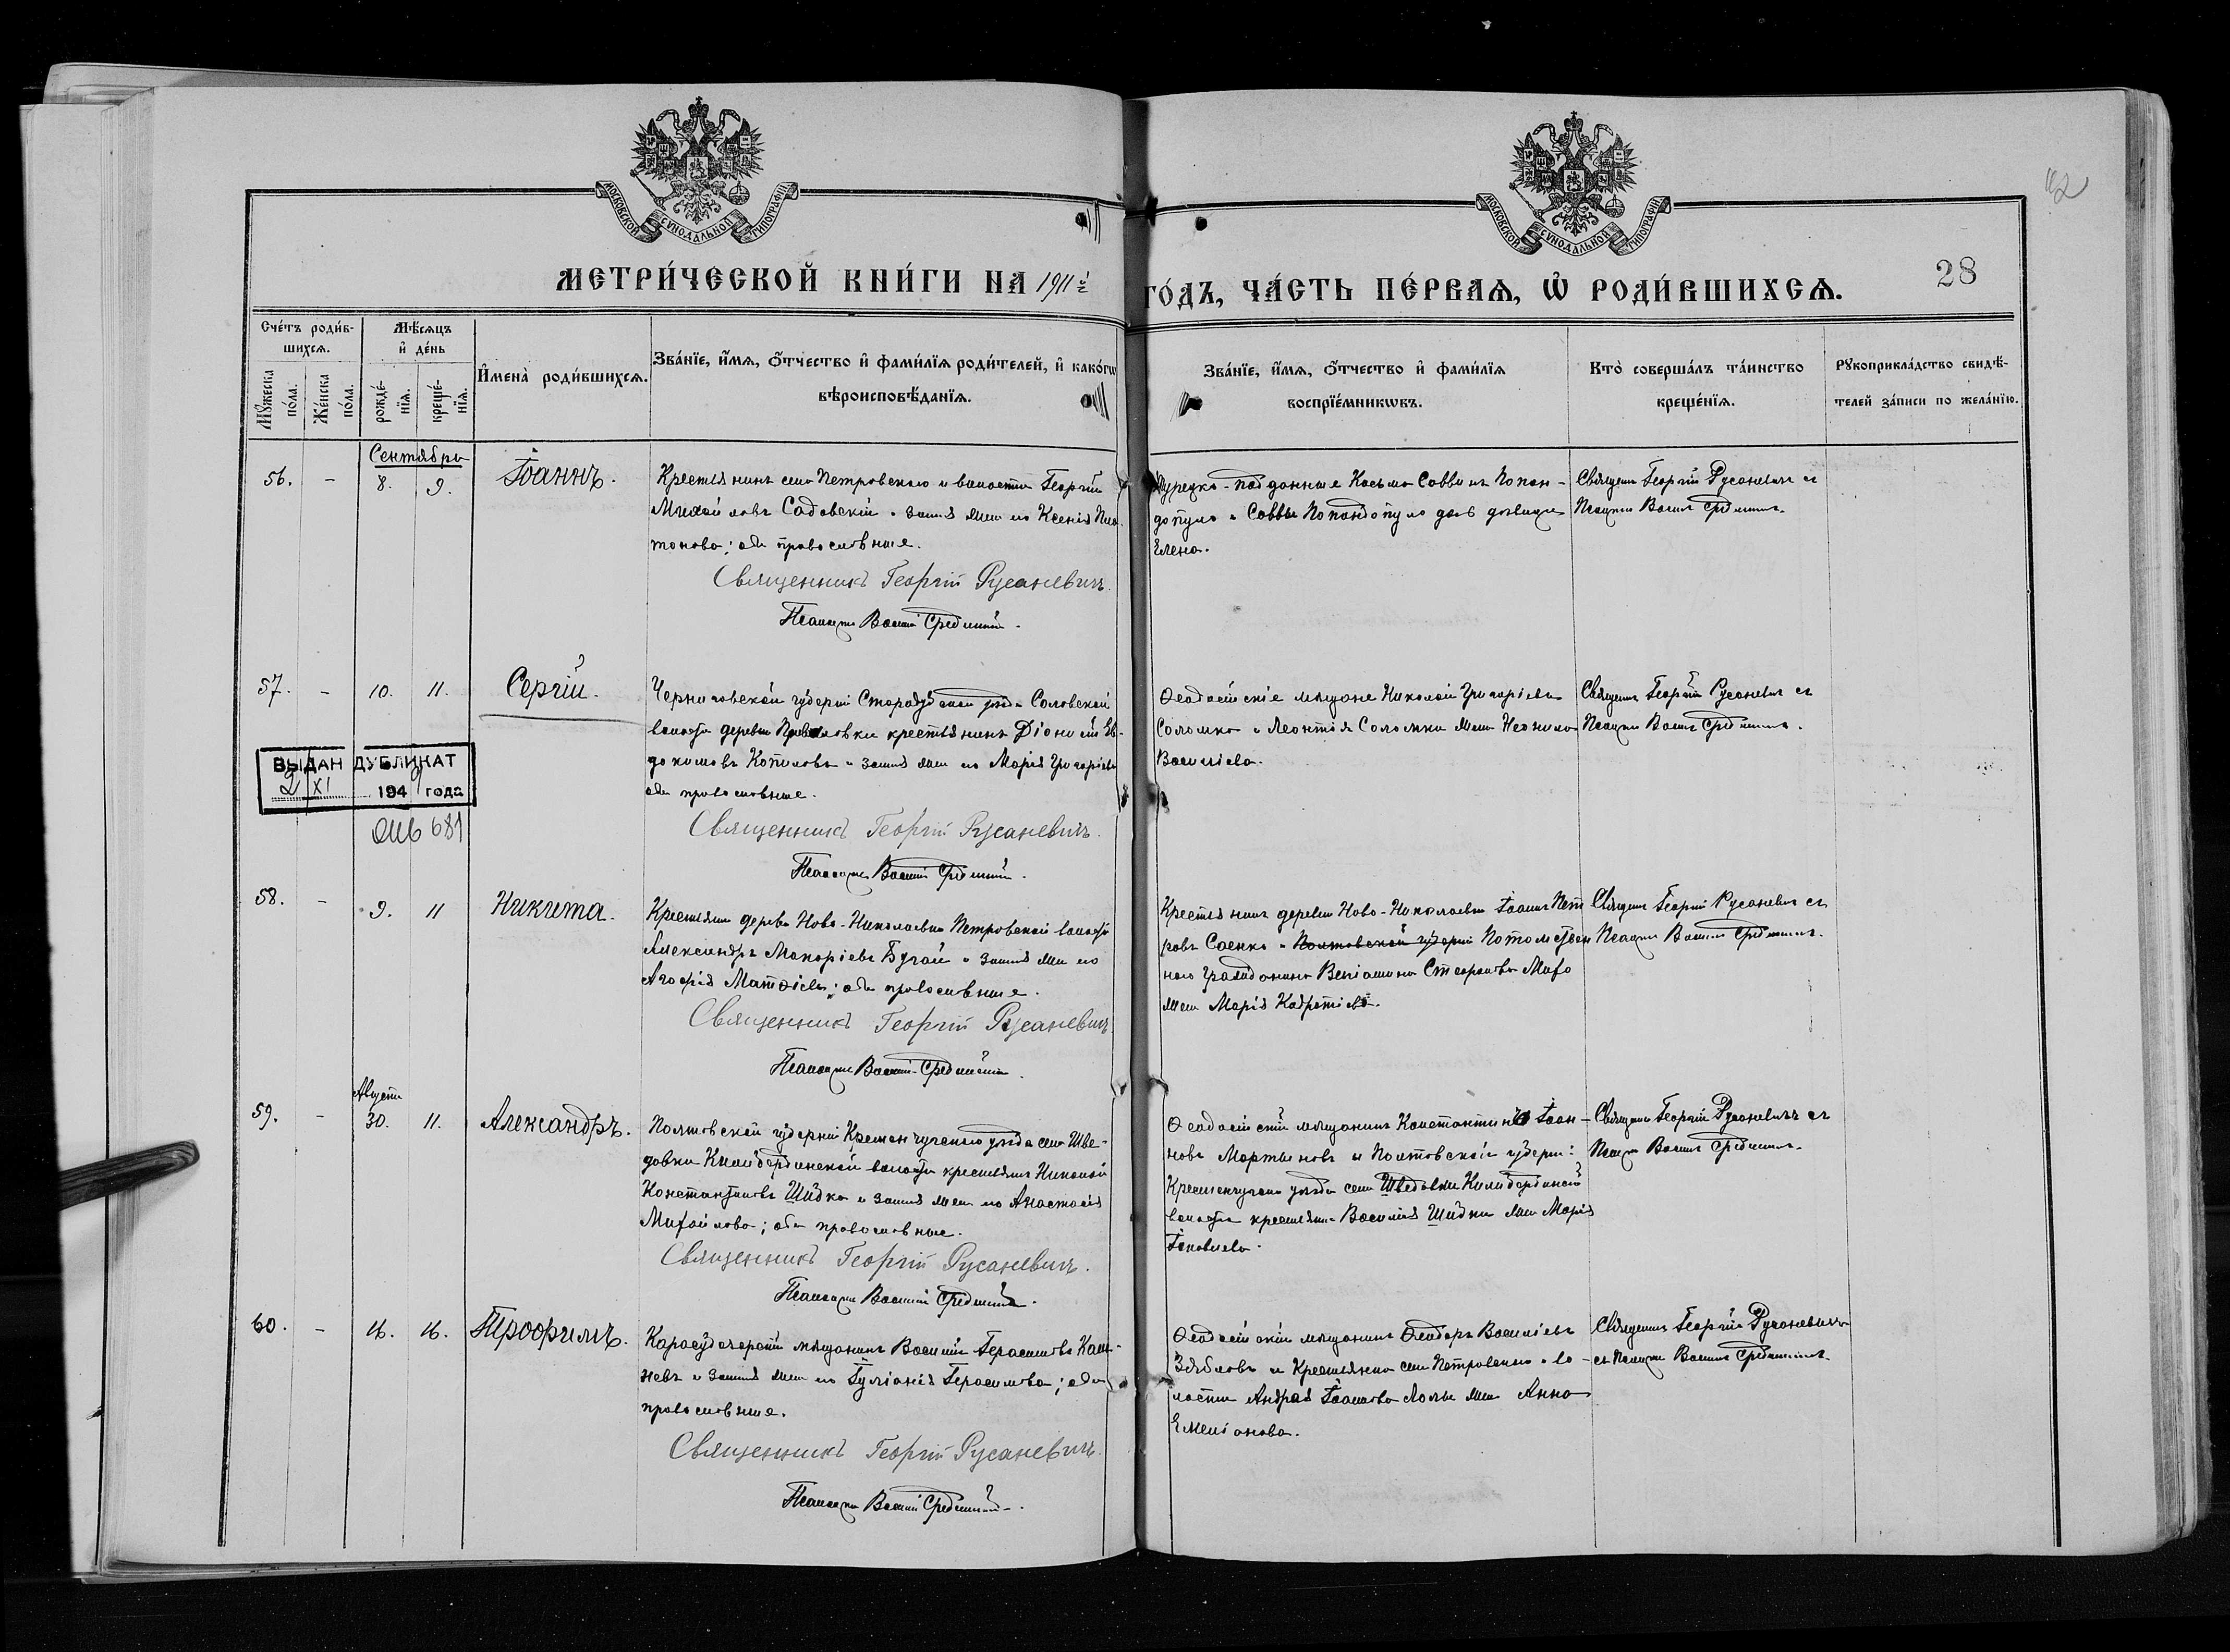 МОСКОВСКОЙ СѴНОДАЛЬНОЙ ТИПОГРАФІИ
МОСКОВСКОЙ СѴНОДАЛЬНОЙ ТИПОГРАФІИ
МЕТРИ́ЧЕСКОЙ КНИ́ГИ НА 1911й
ГО́ДЪ, ЧА́СТЬ ПЕ́РВАѦ, Ѡ҆ РОДИ́ВШИХСѦ.
28
Сче́тъ роди́в-
шихсѧ.
Мꙋ́жеска по́ла.
Же́нска по́ла.
Мѣ́сѧцъ
и҆ де́нь
рожде́-
нїѧ.
креще́-
нїѧ.
И҆мена̀ роди́вшихсѧ.
Зва́нїе, и҆́мѧ, ѻ҆́тчество и҆ фами́лїѧ роди́телей, и҆ како́гѡ
вѣроисповѣ́данїѧ.
Зва́нїе, и҆́мѧ, ѻ҆́тчество и҆ фами́лїѧ
воспрїе́мникѡвъ.
Кто̀ соверша́лъ та́инство
креще́нїѧ.
Рꙋкоприкла́дство свидѣ́-
телей за́писи по жела́нїю.
Сентябрь
56. - 8. 9. Іоаннъ.
Крестьянинъ села Петровскаго и волости Георгій
Михайловъ Садовскій и законная жена его Ксенія Пла-
тонова; оба православные.
Священникъ Георгій Русаневичъ.
Псаломщ Василій Средницкій.
Турецко-подданные Косьма Саввинъ Попан-
допуло и Саввы Попандопуло дочь девица
Елена.
Священ Георгій Русаневичъ съ
Псаломщ Васил Средниц.
57. - 10. 11. Сергій.
Черниговской губерніи Стародубскаго уѣзда Соловской
волости деревни крестьянинъ Діонисій Ев-
докимовъ Копыловъ и законная жена его Марія Григорьева
оба православные.
Священникъ Георгій Русаневичъ.
Псаломщ Василій Средницкій.
Ѳеодосійскіе мѣщане Николай Григорьевъ
Соломко и Леонтія Соломки жена Неонила
Васильева.
Священ Георгій Русаневичъ съ
Псаломщ Васил Средниц.
ВЫДАН ДУБЛИКАТ
2 XI 1949 года
681
58. - 9. 11 Никита.
Крестьян дерев Ново-Николаевки Петровской волости
Александръ Макарьевъ Бугай и законная жена его
Агафія Матѳіева; оба православные.
Священникъ Георгій Русаневичъ
Псаломщ Василій Средницкій.
Крестьянинъ деревни Ново-Николаевки Іоаннъ Пет
ровъ Саенко и Полтовской губерніи Потомствен
наго гражданина Веніамина Стефанова
жена Марія
Священ Георгій Русаневичъ съ
Псаломщ Васил Средниц.
Августа
59. - 30. 11. Александръ.
Полтавской губерніи Кременчугскаго уѣзда села Шве-
довки Келибердинской волости крестьян Николай
Константиновъ Шидко и законная жена его Анастасія
Михайлова; оба православные.
Священникъ Георгій Русаневичъ.
Псаломщ Василій Средницкій.
Ѳеодосійскій мѣщанинъ Константинъ Іоан-
новъ Мартыновъ и Полтовской губерніи
Кременчугскаго уѣзда села Шведовки Келибердинской
волости крестьян Василія Шидки жена Марія
Іаковлева.
Священ Георгій Русаневичъ съ
Псаломщ Васил Средниц.
60. - 16. 16. Трофимъ.
Карасубазарскій мѣщанинъ Василій Герасимовъ
и законная жена его Іуліанія Герасимова; оба
православные.
Священникъ Георгій Русаневичъ.
Псаломщ Василій Средницкій.
Ѳеодосійскій мѣщанинъ Ѳеодоръ Васильевъ
Зябловъ и Крестьянина села Петровскаго и во-
лости Андрея Іоаннова жена Анна
Емельянова.
Священ Георгій Русаневичъ
съ Псаломщ Васил Средниц.